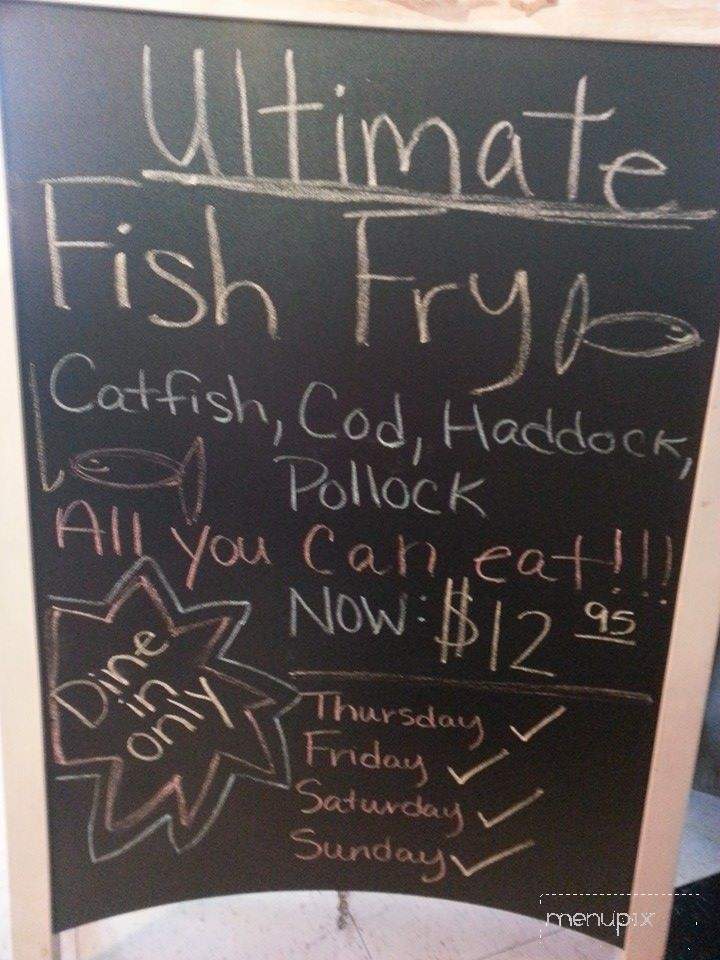 Ultimate
Fish Fry
Catfish, Cod, Haddock,
Pollock
All you can eat!!!
NOW: $12 95
Dine
in
only
Thursday ✓
Friday ✓
Saturday ✓
Sunday ✓
menupix